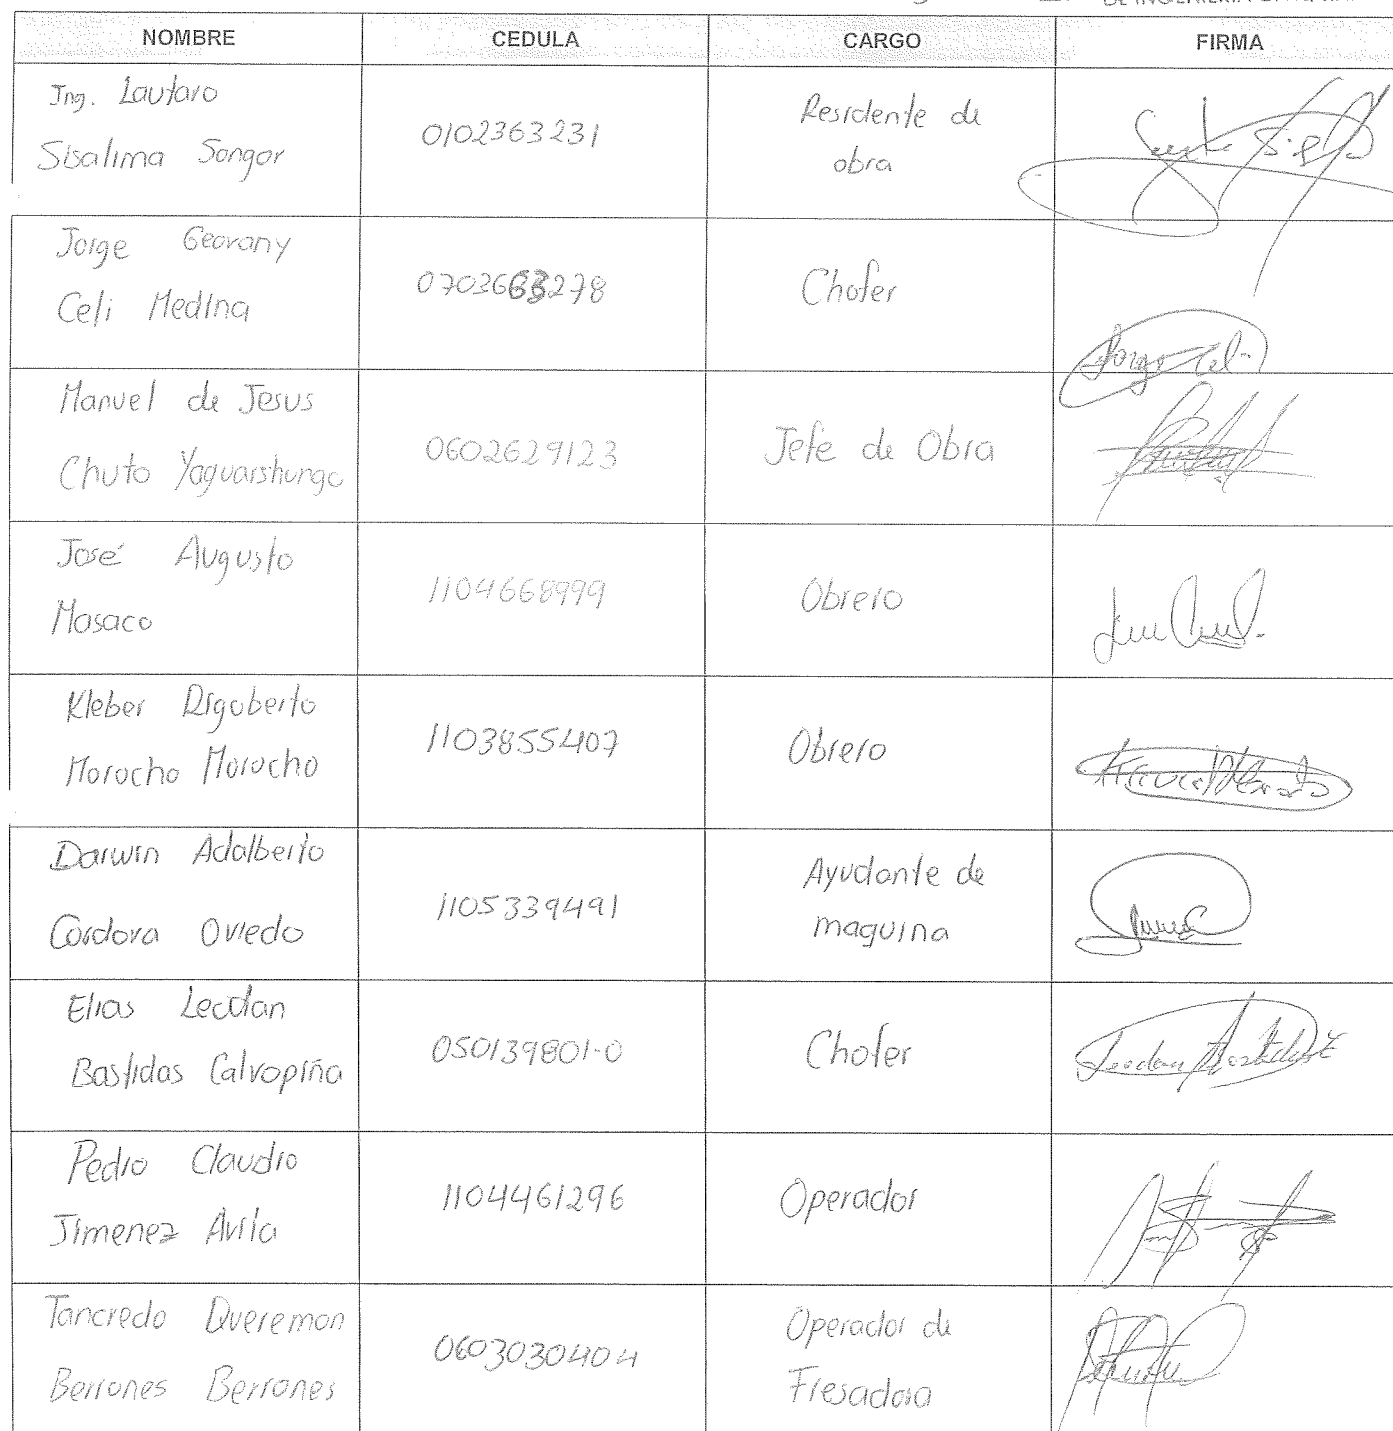 NOMBRE CEDULA CARGO FIRMA
Ing. Lautaro
Sisalima Songor
0102363231
Residente de
obra
Jorge Geovany
Celi Medina
0703663278
Chofer
Jorge Celi
Manuel de Jesus
Chuto Yaguarshungo
0602629123
Jefe de Obra
José Augusto
Masaco
1104668999
Obrero
Kleber Rigoberto
Morocho Morocho
1103855407
Obrero
Darwin Adalberto
Cordova Oviedo
1105339491
Ayudante de
maquina
Elias Leodan
Bastidas Calvopiña
050139801-0
Chofer
Pedro Claudio
Jimenez Avila
1104461296
Operador
Tancredo Queremon
Berrones Berrones
0603030404
Operador de
Fresadora